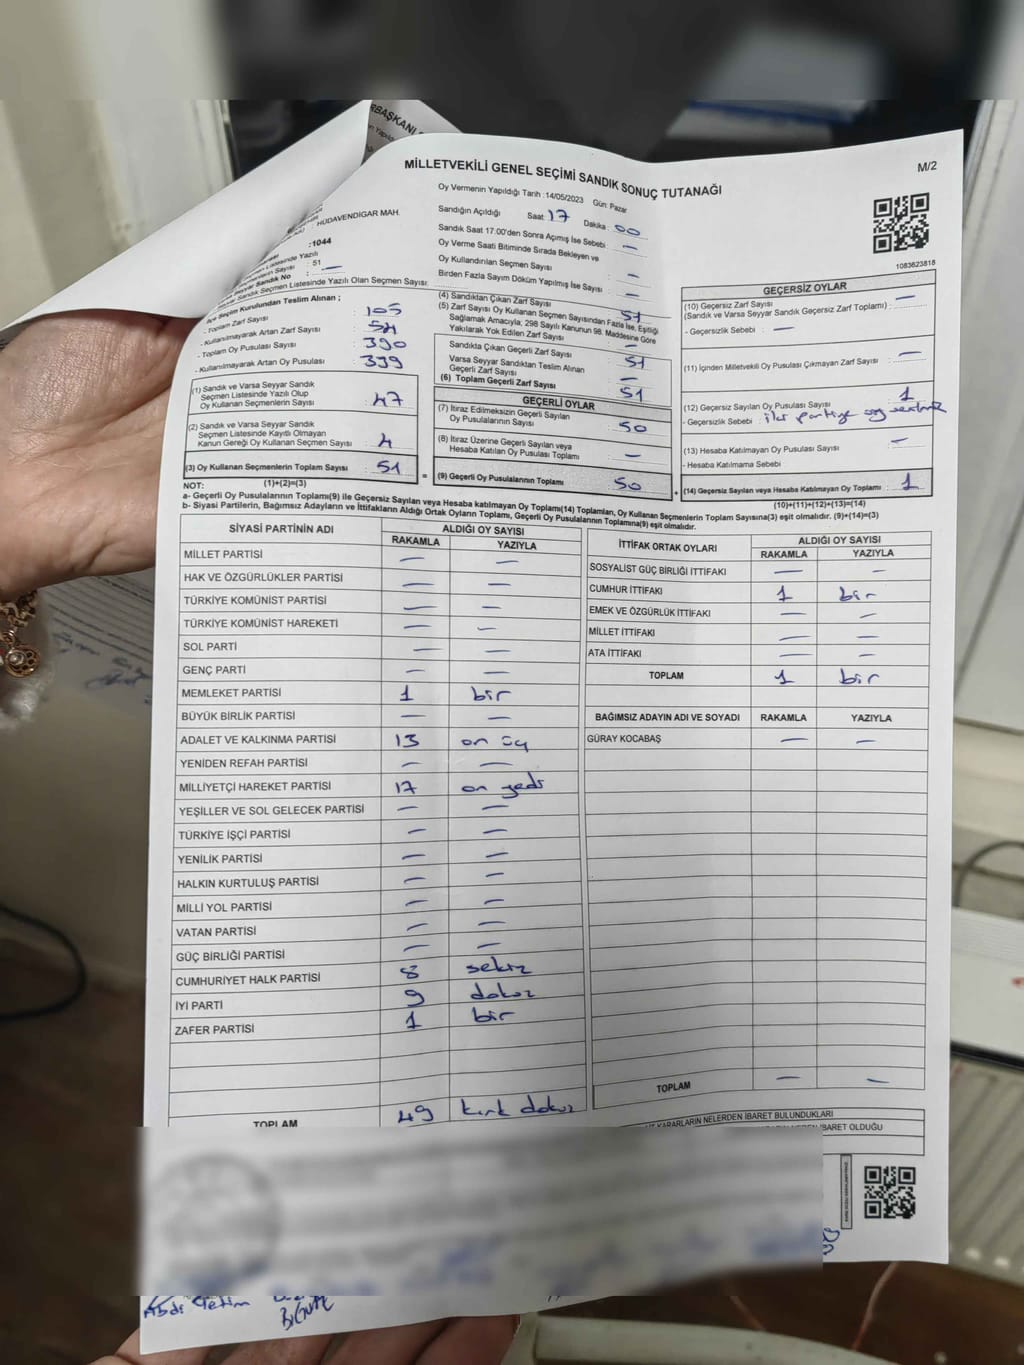 RBAŞKANLI
MİLLETVEKİLİ GENEL SEÇİMİ SANDIK SONUÇ TUTANAĞI
M/2
Oy Vermenin Yapıldığı Tarih : 14/05/2023 Gün: Pazar
Sandığın Açıldığı Saat 17 Dakika : 00
Sandık Saat 17.00'den Sonra Açımış İse Sebebi : —
Oy Verme Saati Bitiminde Sırada Bekleyen ve
Oy Kullandırılan Seçmen Sayısı —
Birden Fazla Sayım Döküm Yapılmış İse Sayısı : —
HÜDAVENDİGAR MAH.
:1044
Listesinde Yazılı
Sayısı : 51
Seyyar Sandık No : —
Sandık Seçmen Listesinde Yazılı Olan Seçmen Sayısı:
Seçim Kurulundan Teslim Alınan ;
- Toplam Zarf Sayısı : 105
- Kullanılmayarak Artan Zarf Sayısı : 54
- Toplam Oy Pusulası Sayısı : 390
- Kullanılmayarak Artan Oy Pusulası : 339
(1) Sandık ve Varsa Seyyar Sandık
Seçmen Listesinde Yazılı Olup
Oy Kullanan Seçmenlerin Sayısı : 47
(2) Sandık ve Varsa Seyyar Sandık
Seçmen Listesinde Kayıtlı Olmayan
Kanun Gereği Oy Kullanan Seçmen Sayısı : 4
(3) Oy Kullanan Seçmenlerin Toplam Sayısı : 51
(1)+(2)=(3)
(4) Sandıktan Çıkan Zarf Sayısı : 51
(5) Zarf Sayısı Oy Kullanan Seçmen Sayısından Fazla İse, Eşitliği
Sağlamak Amacıyla, 298 Sayılı Kanunun 98. Maddesine Göre
Yakılarak Yok Edilen Zarf Sayısı : —
Sandıkta Çıkan Geçerli Zarf Sayısı : 51
Varsa Seyyar Sandıktan Teslim Alınan
Geçerli Zarf Sayısı : —
(6) Toplam Geçerli Zarf Sayısı : 51
GEÇERLİ OYLAR
(7) İtiraz Edilmeksizin Geçerli Sayılan
Oy Pusulalarının Sayısı : 50
(8) İtiraz Üzerine Geçerli Sayılan veya
Hesaba Katılan Oy Pusulası Toplamı : —
= (9) Geçerli Oy Pusulalarının Toplamı : 50
1083623818
GEÇERSİZ OYLAR
(10) Geçersiz Zarf Sayısı : —
(Sandık ve Varsa Seyyar Sandık Geçersiz Zarf Toplamı)
- Geçersizlik Sebebi : —
(11) İçinden Milletvekili Oy Pusulası Çıkmayan Zarf Sayısı : —
(12) Geçersiz Sayılan Oy Pusulası Sayısı : 1
- Geçersizlik Sebebi : iki partiye oy
(13) Hesaba Katılmayan Oy Pusulası Sayısı : —
- Hesaba Katılmama Sebebi
+ (14) Geçersiz Sayılan veya Hesaba Katılmayan Oy Toplamı : 1
(10)+(11)+(12)+(13)=(14)
NOT:
a- Geçerli Oy Pusulalarının Toplamı(9) ile Geçersiz Sayılan veya Hesaba katılmayan Oy Toplamı(14) Toplamları, Oy Kullanan Seçmenlerin Toplam Sayısına(3) eşit olmalıdır. (9)+(14)=(3)
b- Siyasi Partilerin, Bağımsız Adayların ve İttifakların Aldığı Ortak Oyların Toplamı, Geçerli Oy Pusulalarının Toplamına(9) eşit olmalıdır.
SİYASİ PARTİNİN ADI ALDIĞI OY SAYISI
RAKAMLA YAZIYLA
MİLLET PARTİSİ — —
HAK VE ÖZGÜRLÜKLER PARTİSİ — —
TÜRKİYE KOMÜNİST PARTİSİ — —
TÜRKİYE KOMÜNİST HAREKETİ — —
SOL PARTİ — —
GENÇ PARTİ — —
MEMLEKET PARTİSİ 1 bir
BÜYÜK BİRLİK PARTİSİ — —
ADALET VE KALKINMA PARTİSİ 13 on üç
YENİDEN REFAH PARTİSİ — —
MİLLİYETÇİ HAREKET PARTİSİ 17 on yedi
YEŞİLLER VE SOL GELECEK PARTİSİ — —
TÜRKİYE İŞÇİ PARTİSİ — —
YENİLİK PARTİSİ — —
HALKIN KURTULUŞ PARTİSİ — —
MİLLİ YOL PARTİSİ — —
VATAN PARTİSİ — —
GÜÇ BİRLİĞİ PARTİSİ — —
CUMHURİYET HALK PARTİSİ 8 sekiz
İYİ PARTİ 9 dokuz
ZAFER PARTİSİ 1 bir
TOPLAM 49 kırk dokuz
İTTİFAK ORTAK OYLARI ALDIĞI OY SAYISI
RAKAMLA YAZIYLA
SOSYALİST GÜÇ BİRLİĞİ İTTİFAKI — —
CUMHUR İTTİFAKI 1 bir
EMEK VE ÖZGÜRLÜK İTTİFAKI — —
MİLLET İTTİFAKI — —
ATA İTTİFAKI — —
TOPLAM 1 bir
BAĞIMSIZ ADAYIN ADI VE SOYADI RAKAMLA YAZIYLA
GÜRAY KOCABAŞ — —
TOPLAM — —
KARARLARIN NELERDEN İBARET BULUNDUKLARI
İBARET OLDUĞU